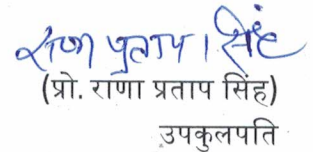 राणा प्रताप सिंह
(प्रो. राणा प्रताप सिंह)
उपकुलपति